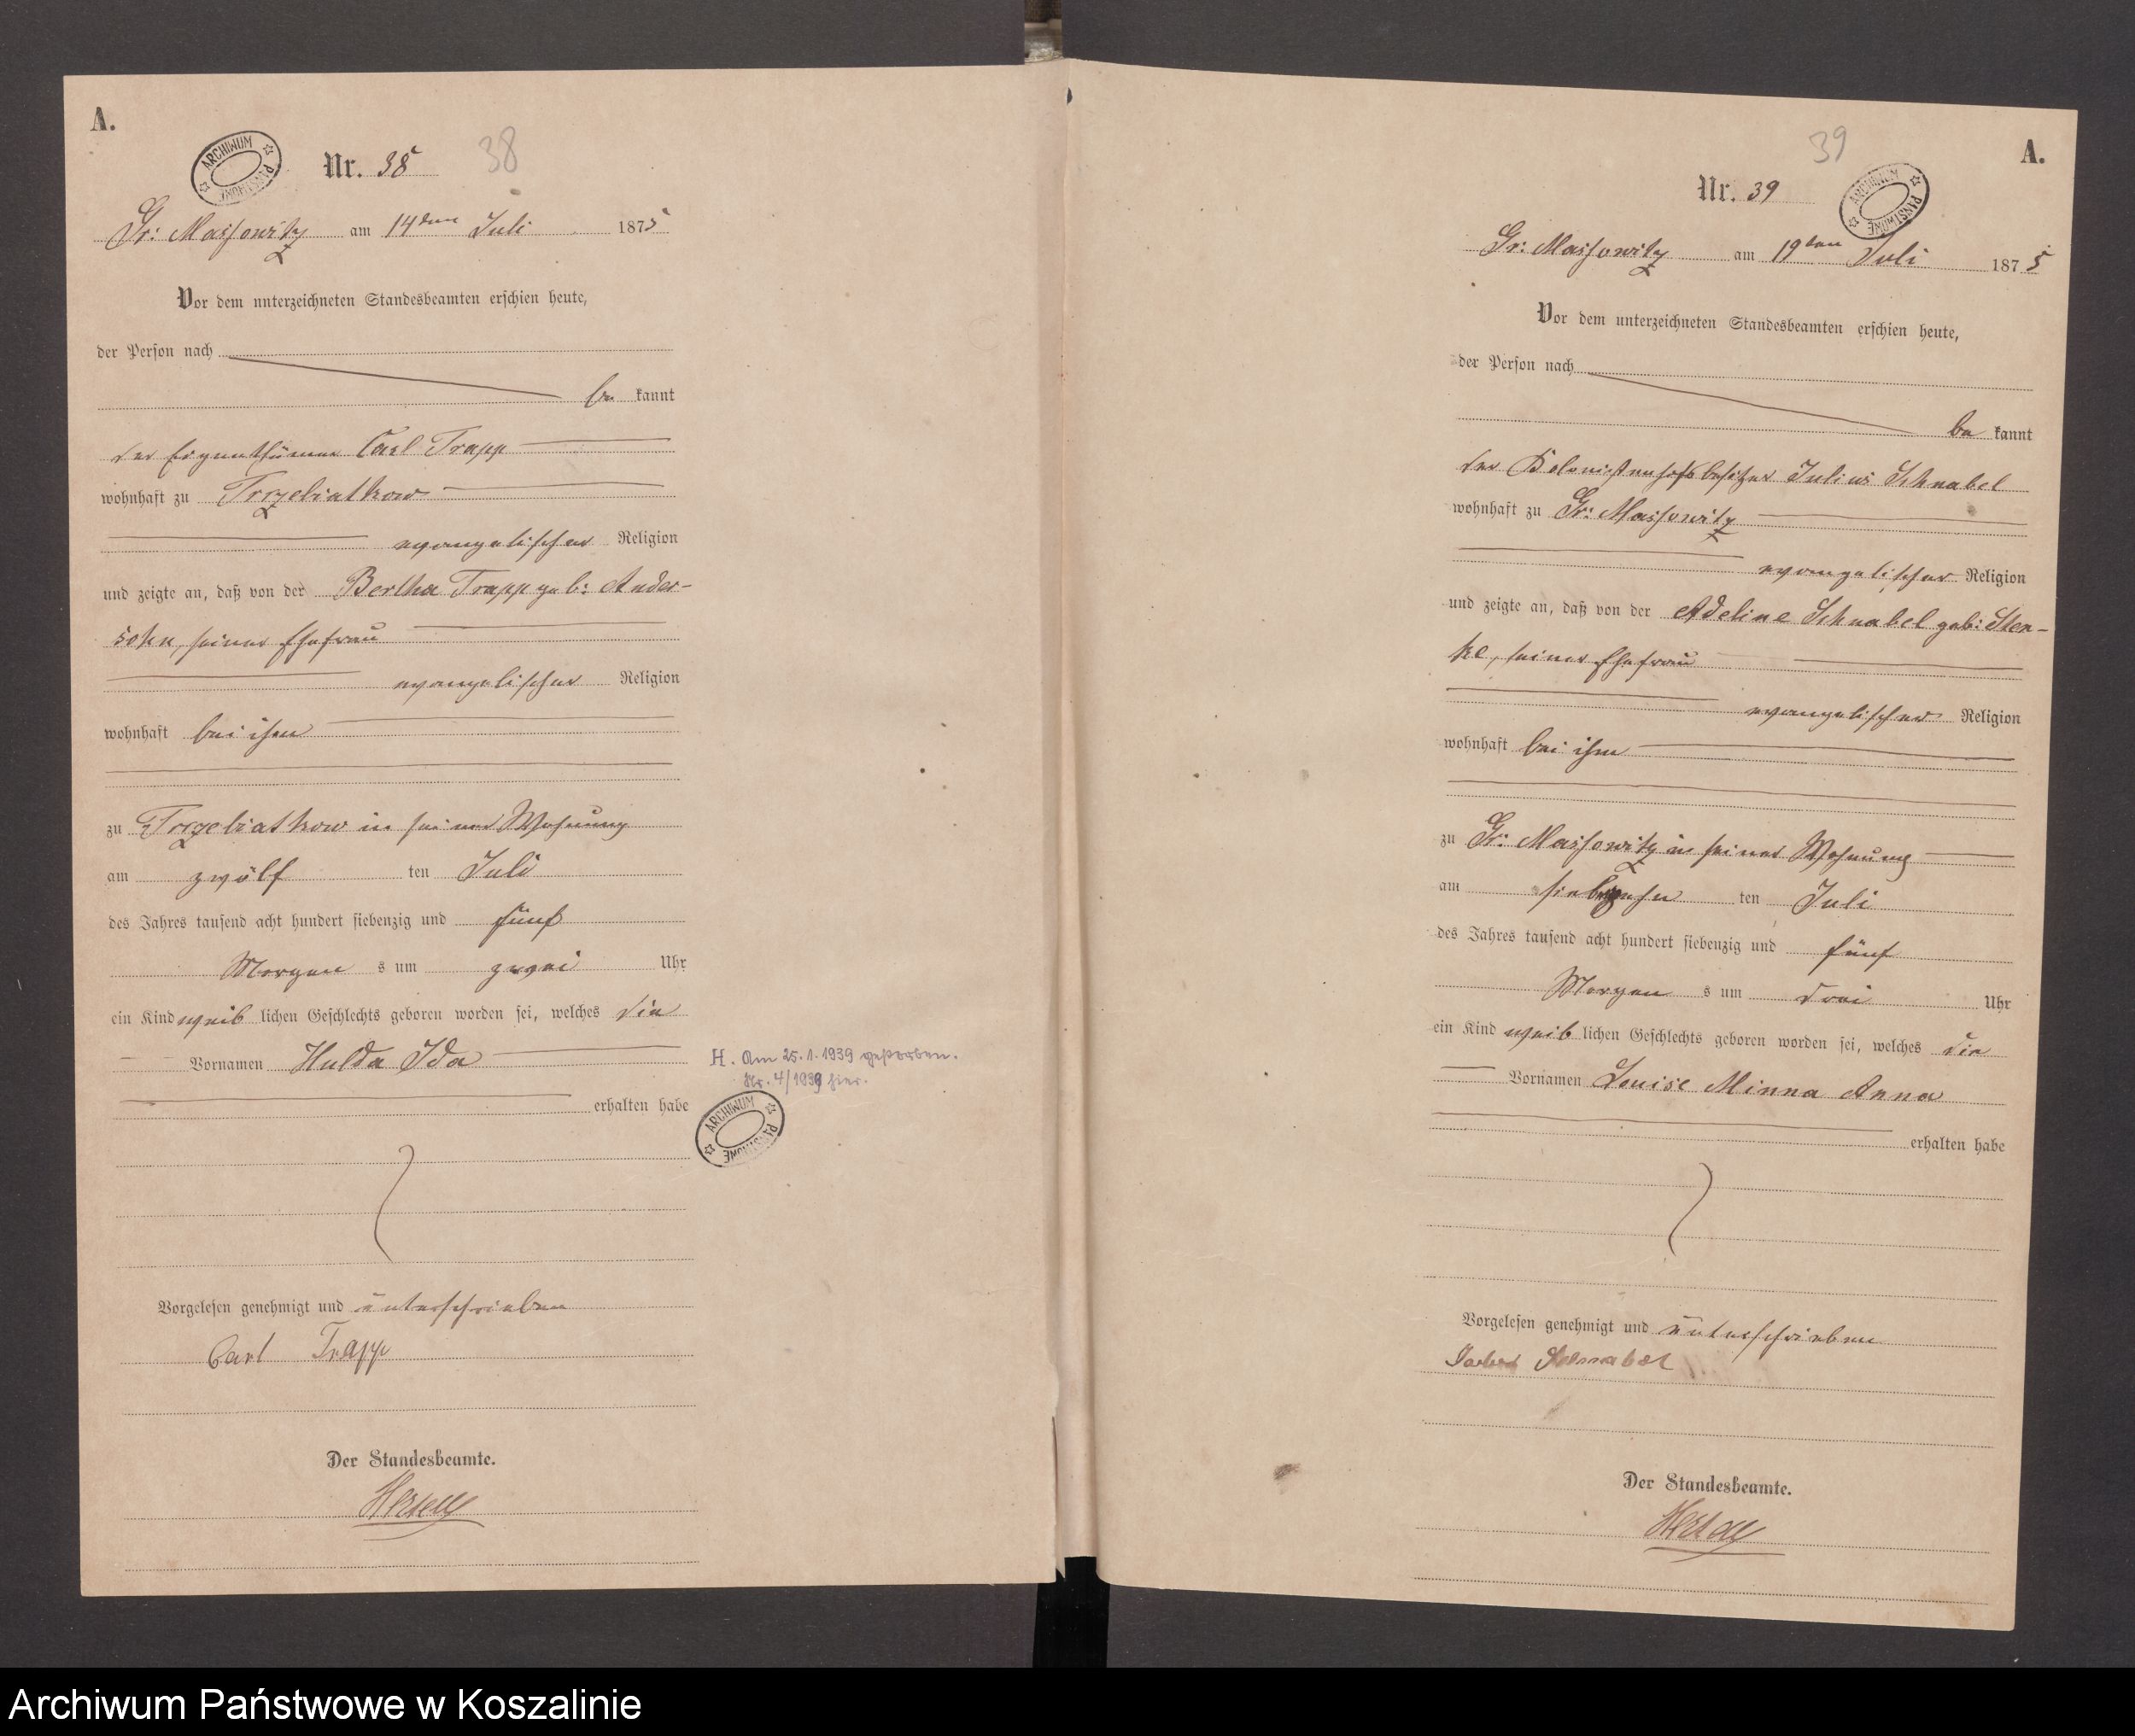 A.
ARCHIWUM PAŃSTWOWE
Nr. 38
38
Gr: Massowitz am 14ten Juli 1875
Vor dem unterzeichneten Standesbeamten erschien heute,
der Person nach
be kannt
der Eigenthümer Carl Trapp
wohnhaft zu Trzebiatkow
evangelischer Religion
und zeigte an, daß von der Bertha Trapp geb: Ander-
sohn, seiner Ehefrau
evangelischer Religion
wohnhaft bei ihm
zu Trzebiatkow in seiner Wohnung
am zwölf ten Juli
des Jahres tausend acht hundert siebenzig und fünf
Morgen s um zwei Uhr
ein Kind weib lichen Geschlechts geboren worden sei, welches die
Vornamen Hulda Ida
erhalten habe
H. Am 25.1.1939 gestorben.
Nr. 4/1939 hier.
ARCHIWUM PAŃSTWOWE
Vorgelesen genehmigt und unterschrieben
Carl Trapp
Der Standesbeamte.
39
A.
Nr. 39
ARCHIWUM PAŃSTWOWE
Gr: Massowitz am 19ten Juli 1875
Vor dem unterzeichneten Standesbeamten erschien heute,
der Person nach
be kannt
der Kolonistenhofsbesitzer Julius Schnabel
wohnhaft zu Gr: Massowitz
evangelischer Religion
und zeigte an, daß von der Adeline Schnabel geb: Sten-
ke, seiner Ehefrau
evangelischer Religion
wohnhaft bei ihm
zu Gr: Massowitz in seiner Wohnung
am siebzehn ten Juli
des Jahres tausend acht hundert siebenzig und fünf
Morgen s um drei Uhr
ein Kind weib lichen Geschlechts geboren worden sei, welches die
Vornamen Louise Minna Anna
erhalten habe
Vorgelesen genehmigt und unterschrieben
Schnabel
Der Standesbeamte.
Archiwum Państwowe w Koszalinie